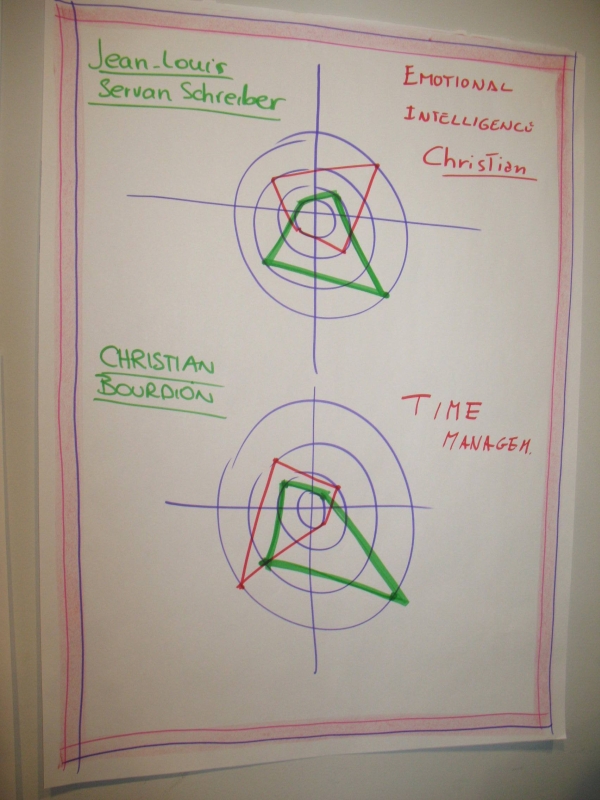 Jean-Louis
Servan Schreiber
EMOTIONAL
INTELLIGENCE
Christian
CHRISTIAN
BOURDION
TIME
MANAGEM.